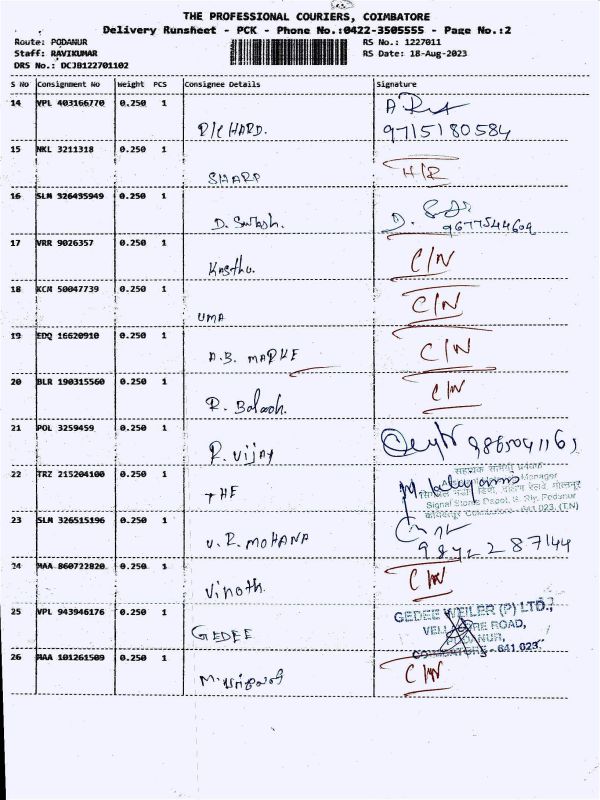 THE PROFESSIONAL COURIERS, COIMBATORE
Delivery Runsheet - PCK - Phone No.:0422-3505555 - Page No.:2
Route: PODANUR RS No.: 1227011
Staff: RAVIKUMAR RS Date: 18-Aug-2023
DRS No.: DCJB122701102
S No Consignment No Weight PCS Consignee Details Signature
14 VPL 403166770 0.250 1
RICHARD. 9715180584
15 NKL 3211318 0.250 1
SHARP H/R
16 SLM 326435949 0.250 1
D. D. 9677544609
17 VRR 9026357 0.250 1
Kasthu. C/N
18 KCM 50047739 0.250 1
UMA C/N
19 EDQ 16620910 0.250 1
A.B. MARKE C/N
20 BLR 190315560 0.250 1
R. C/N
21 POL 3259459 0.250 1
R. Vijay
22 TRZ 215204100 0.250 1
THE
Manager
Signal Stores Depot, S. Rly, Podanur
Coimbatore - 641 023. (T.N)
23 SLM 326515196 0.250 1
V. R. MOHANA 9842287144
24 MAA 860722820 0.250 1
Vinoth. C/N
25 VPL 943946176 0.250 1
GEDEE
GEDEE WEILER (P) LTD.,
ROAD,
PODANUR,
COIMBATORE - 641 023
26 MAA 101261509 0.250 1
C/N